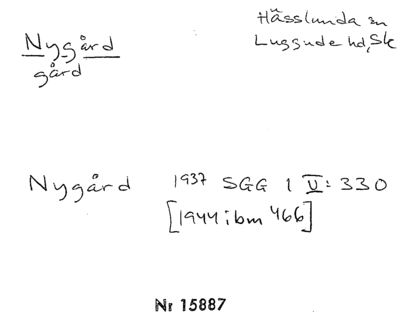 Nygård
gård
Hässlunda sn
Luggude hd, Sk
Nygård 1937 SGG 1 V: 330
[1944 ibm 466]
Nr 15887